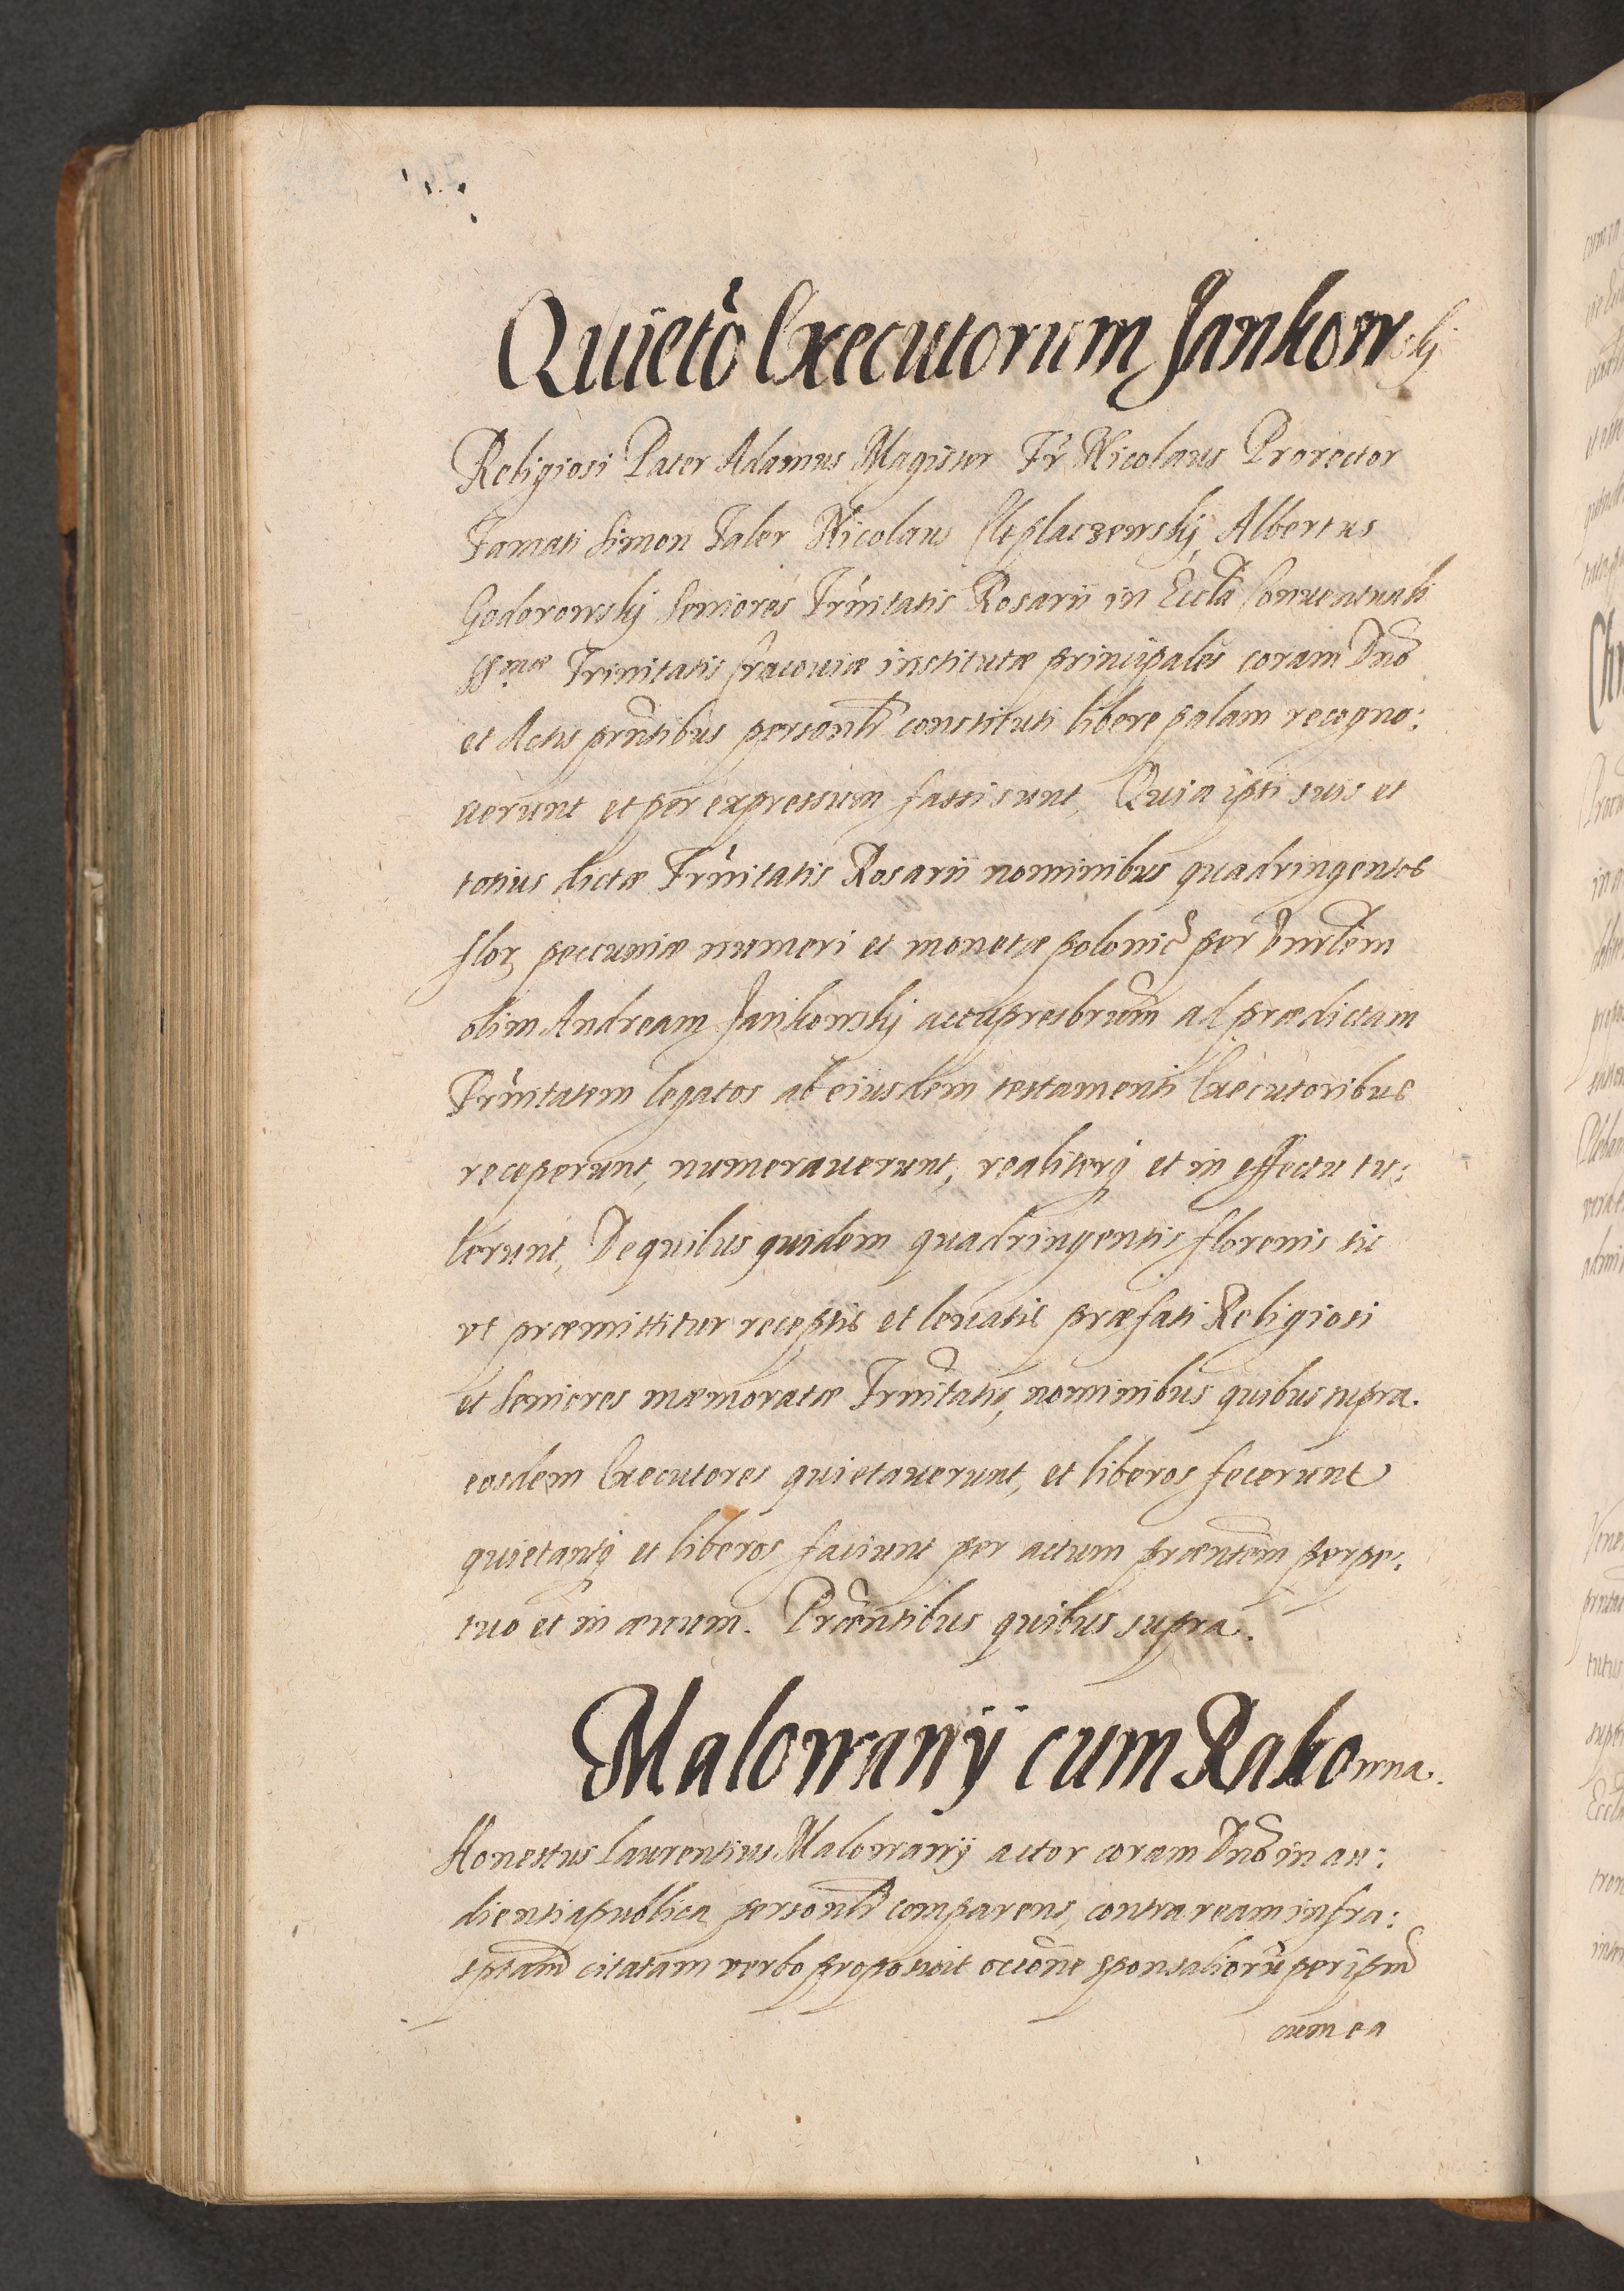 Quietõ Executorum Jankowskij
Religiosi Pater Adamus Magister Fr Nicolaus Prorector
Famati Simon Taler Nicolaus Albertus
Godorowskij Seniores Frnitatis Rosarii in Eccla Conuentuali
SSmæ Trinitatis Cracouiæ institutæ principales coram Dno
et Actis prntibus personlr constituti libere palam recogno:
uerunt et per expressum fassi sunt, Quia ipsi suis et
totius dictæ Frnitatis Rosarii nominibus quadringentos
flor peccuniæ numeri et monetæ polonic per
olim Andream Jankowskij ad prædictam
Frnitatem legatos ab eiusdem testamenti Executoribus
receperunt, numerauerunt, realiterq et in effectu tu:
lerunt, De quibus quidem quadringentis florenis sic
vt præmittitur receptis et leuatis præfati Religiosi
et Seniores mæmoratæ Frnitatis, nominibus quibus supra.
eosdem Executores quietauerunt, et liberos fecerunt
quietantq et liberos faciunt per actum præntem perpe:
tuo et in æuum. Præntibus quibus supra.
Malowanÿ cum Rakowna.
Honestus Laurentius Malowanÿ actor coram Dno in au:
dientia publica personlr comparens, contra ream infra:
sptam citatam verbo proposuit occone sponsaliorũ per ipm
cum ea